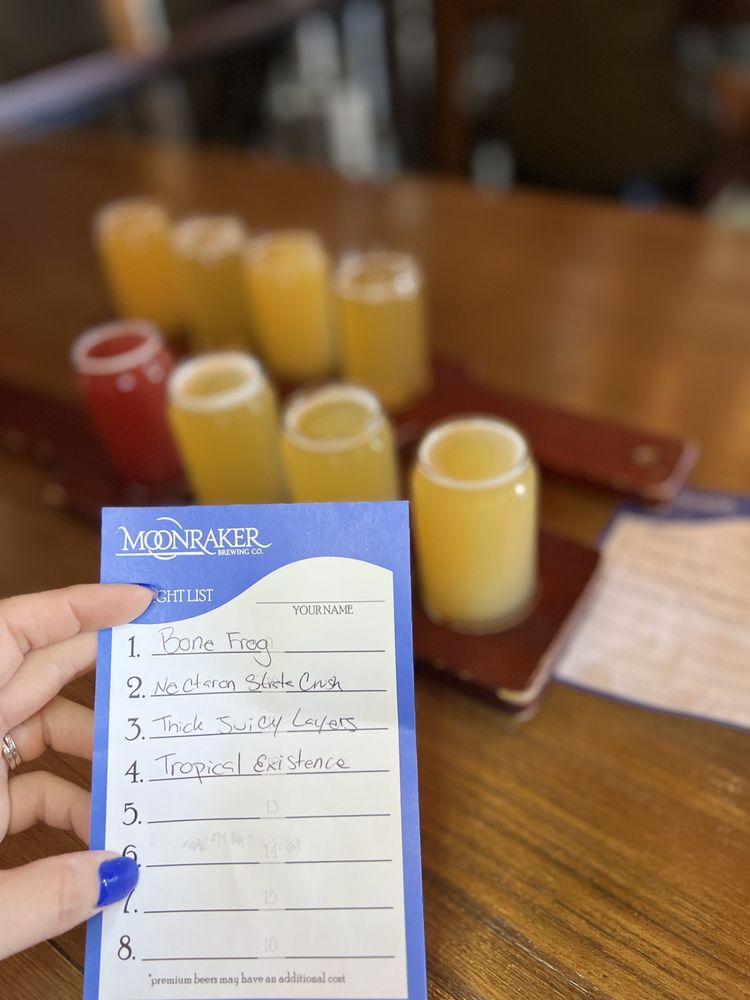 MOONRAKER
BREWING CO.
GHT LIST
YOUR NAME
1. Bone Frog
2. Nectaron Strata Crush
3. Thick Juicy Layers
4. Tropical Existence
5. 13
6. 14
7. 15
8. 16
*premium beers may have an additional cost